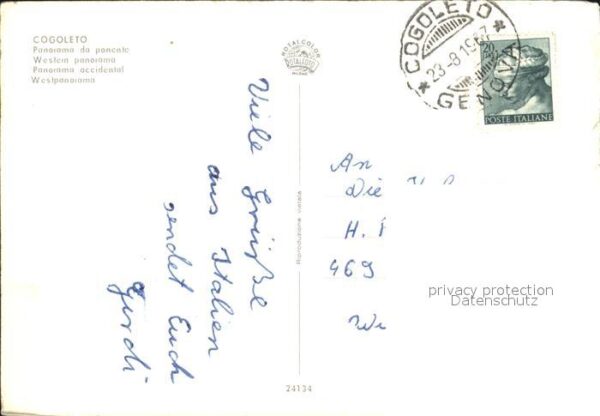 COGOLETO
Panorama da ponente
Western panorama
Panorama accidental
Westpanorama
ROTALCOLOR
ROTALFOTO
MILANO
COGOLETO
23-8.1967
GENOVA
POSTE ITALIANE
Viele Grüße
aus Italien
sendet Euch
Gerdi
Riproduzione vietata
An
Die
H.
469
privacy protection
Datenschutz
24134